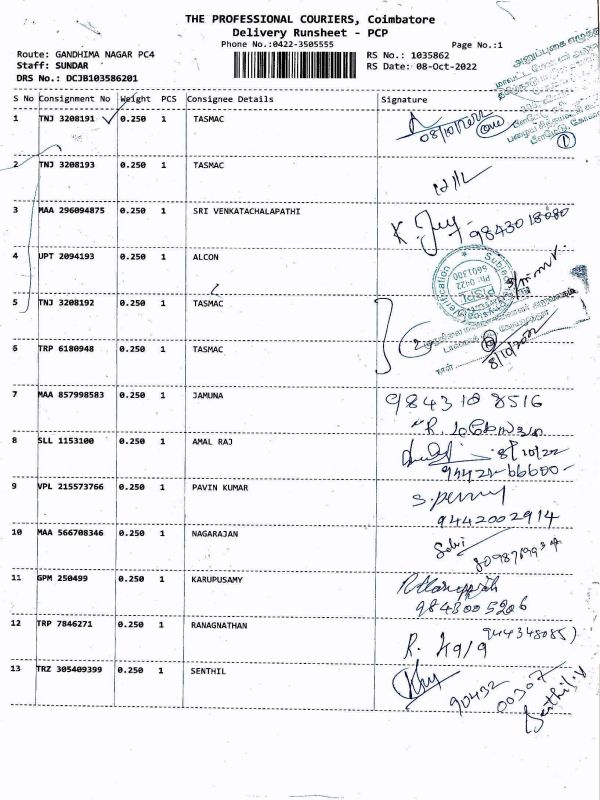 THE PROFESSIONAL COURIERS, Coimbatore
Delivery Runsheet - PCP
Phone No.:0422-3505555
Page No.:1
Route: GANDHIMA NAGAR PC4
Staff: SUNDAR
DRS No.: DCJB103586201
RS No.: 1035862
RS Date: 08-Oct-2022
S No Consignment No Weight PCS Consignee Details Signature
1 TNJ 3208191 0.250 1 TASMAC
08/10/2022 one
2 TNJ 3208193 0.250 1 TASMAC
3 MAA 296094875 0.250 1 SRI VENKATACHALAPATHI
9843018080
4 UPT 2094193 0.250 1 ALCON
5 TNJ 3208192 0.250 1 TASMAC
6 TRP 6180948 0.250 1 TASMAC
8/10/2022
7 MAA 857998583 0.250 1 JAMUNA
9843188516
8 SLL 1153100 0.250 1 AMAL RAJ
8/10/22
94421-66600-
9 VPL 215573766 0.250 1 PAVIN KUMAR
9442002914
10 MAA 566708346 0.250 1 NAGARAJAN
11 GPM 250499 0.250 1 KARUPUSAMY
9843005206
12 TRP 7846271 0.250 1 RANAGNATHAN
13 TRZ 305409399 0.250 1 SENTHIL
90432
00307